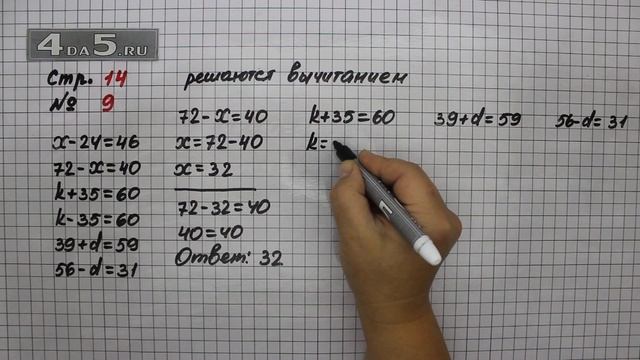 4DA5.RU
Стр. 14
№ 9
решаются вычитанием
x-24=46
72-x=40
k+35=60
k-35=60
39+d=59
56-d=31
72-x=40
x=72-40
x=32
72-32=40
40=40
Ответ: 32
k+35=60
k=
39+d=59
56-d=31